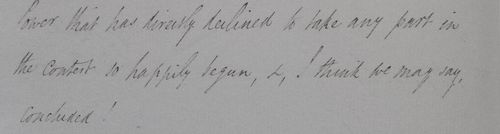 Power that has directly declined to take any part in
the contest so happily begun, &, I think we may say,
concluded!